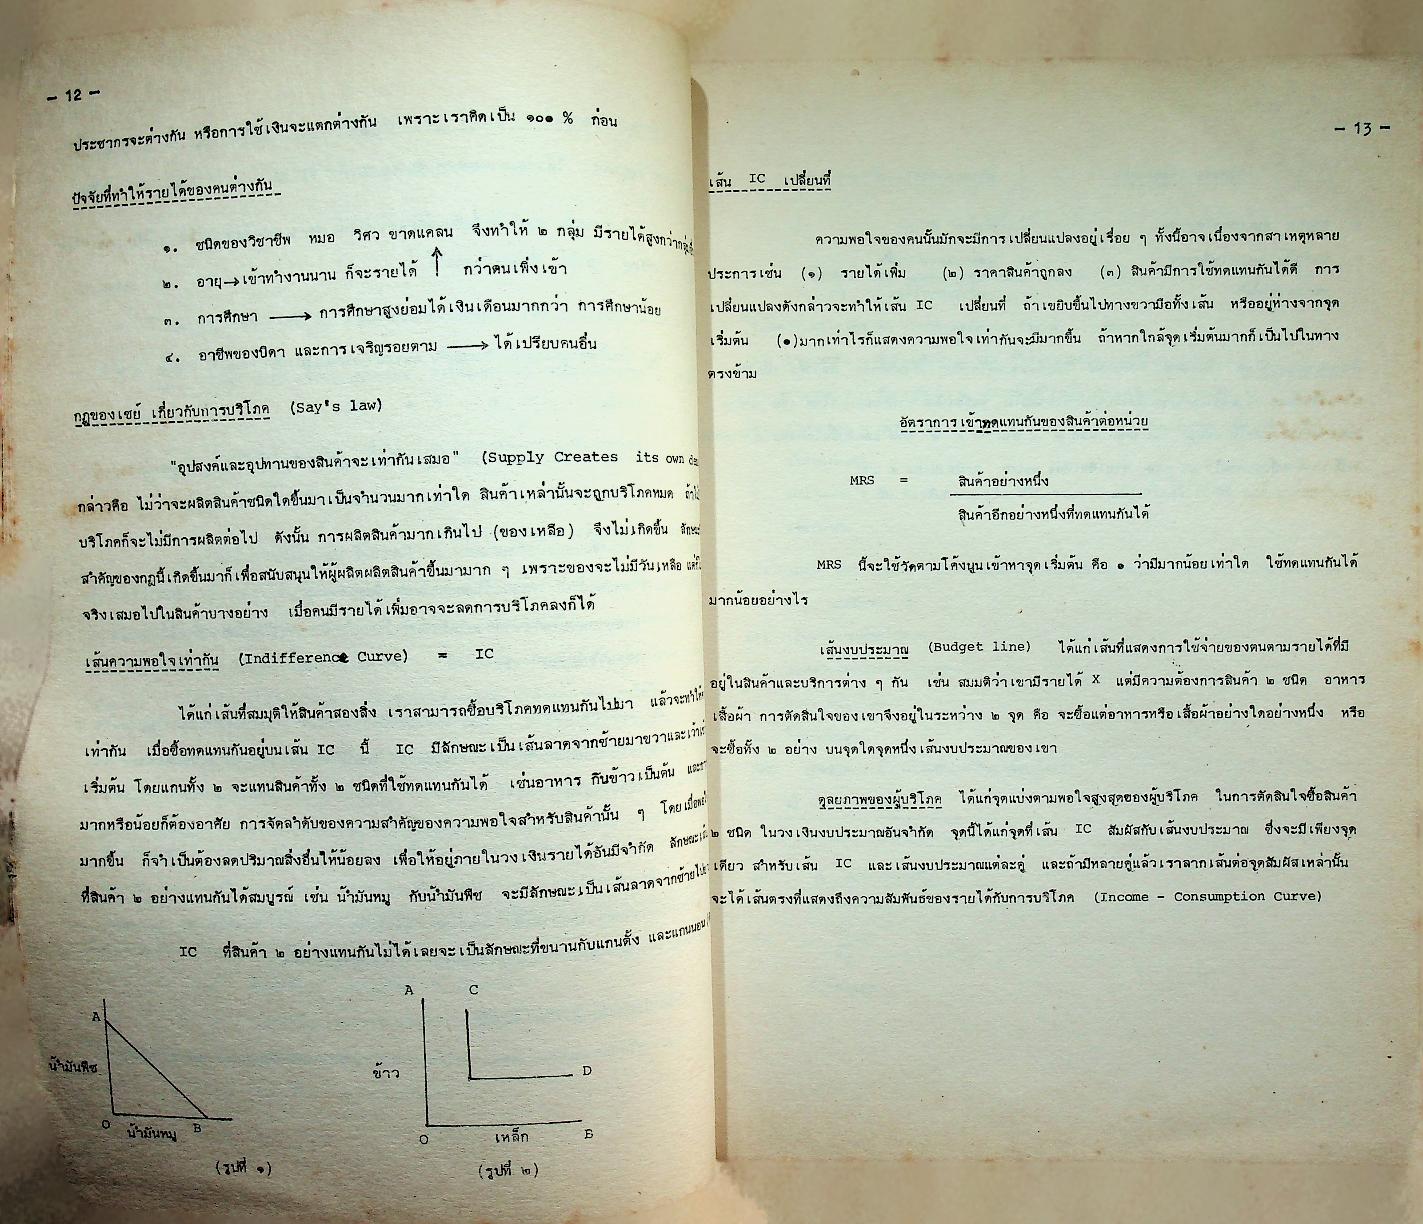 - 12 -
ประชากรจะต่างกัน หรือการใช้เงินจะแตกต่างกัน เพราะเราคิดเป็น ๑๐๐ % ก่อน
ปัจจัยที่ทำให้รายได้ของคนต่างกัน
๑. ชนิดของวิชาชีพ หมอ วิศว ขาดแคลน จึงทำให้ ๒ กลุ่ม มีรายได้สูงกว่า
๒. อายุ→เข้าทำงานนาน ก็จะรายได้ ↑ กว่าคนเพิ่งเข้า
๓. การศึกษา ⟶ การศึกษาสูงย่อมได้เงินเดือนมากกว่า การศึกษาน้อย
๔. อาชีพของบิดา และการเจริญรอยตาม ⟶ ได้เปรียบคนอื่น
กฎของเซย์ เกี่ยวกับการบริโภค (Say's law)
"อุปสงค์และอุปทานของสินค้าจะเท่ากันเสมอ" (Supply Creates its own
กล่าวคือ ไม่ว่าจะผลิตสินค้าชนิดใดขึ้นมาเป็นจำนวนมากเท่าใด สินค้าเหล่านั้นจะถูกบริโภคหมด
บริโภคก็จะไม่มีการผลิตต่อไป ดังนั้น การผลิตสินค้ามากเกินไป (ของเหลือ) จึงไม่เกิดขึ้น
สำคัญของกฎนี้เกิดขึ้นมาก็เพื่อสนับสนุนให้ผู้ผลิตผลิตสินค้าขึ้นมามาก ๆ เพราะของจะไม่มีวันเหลือ
จริงเสมอไปในสินค้าบางอย่าง เมื่อคนมีรายได้เพิ่มอาจจะลดการบริโภคลงก็ได้
เส้นความพอใจเท่ากัน (Indifference Curve) = IC
ได้แก่เส้นที่สมมุติให้สินค้าสองสิ่ง เราสามารถซื้อบริโภคทดแทนกันไปมา แล้วจะทำให้
เท่ากัน เมื่อซื้อทดแทนกันอยู่บนเส้น IC นี้ IC มีลักษณะเป็นเส้นลาดจากซ้ายมาขวาและ
เริ่มต้น โดยแกนทั้ง ๒ จะแทนสินค้าทั้ง ๒ ชนิดที่ใช้ทดแทนกันได้ เช่นอาหาร กินข้าวเป็นต้น
มากหรือน้อยก็ต้องอาศัย การจัดลำดับของความสำคัญของความพอใจสำหรับสินค้านั้น ๆ โดย
มากขึ้น ก็จำเป็นต้องลดปริมาณสิ่งอื่นให้น้อยลง เพื่อให้อยู่ภายในวงเงินรายได้อันมีจำกัด
ที่สินค้า ๒ อย่างแทนกันได้สมบูรณ์ เช่น น้ำมันหมู กับน้ำมันพืช จะมีลักษณะเป็นเส้นลาดจากซ้าย
IC ที่สินค้า ๒ อย่างแทนกันไม่ได้เลยจะเป็นลักษณะที่ขนานกับแกนตั้ง และแกนนอน
A
น้ำมันพืช
O น้ำมันหมู B
(รูปที่ ๑)
A C
ข้าว D
O เหล็ก B
(รูปที่ ๒)
- 13 -
เส้น IC เปลี่ยนที่
ความพอใจของคนนั้นมักจะมีการเปลี่ยนแปลงอยู่เรื่อย ๆ ทั้งนี้อาจเนื่องจากสาเหตุหลาย
ประการเช่น (๑) รายได้เพิ่ม (๒) ราคาสินค้าถูกลง (๓) สินค้ามีการใช้ทดแทนกันได้ดี การ
เปลี่ยนแปลงดังกล่าวจะทำให้เส้น IC เปลี่ยนที่ ถ้าเขยิบขึ้นไปทางขวามือทั้งเส้น หรืออยู่ห่างจากจุด
เริ่มต้น (๐)มากเท่าไรก็แสดงความพอใจเท่ากันจะมีมากขึ้น ถ้าหากใกล้จุดเริ่มต้นมากก็เป็นไปในทาง
ตรงข้าม
อัตราการเข้าทดแทนกันของสินค้าต่อหน่วย
MRS = สินค้าอย่างหนึ่ง
สินค้าอีกอย่างหนึ่งที่ทดแทนกันได้
MRS นี้จะใช้วัดตามโค้งนูนเข้าหาจุดเริ่มต้น คือ ๑ ว่ามีมากน้อยเท่าใด ใช้ทดแทนกันได้
มากน้อยอย่างไร
เส้นงบประมาณ (Budget line) ได้แก่เส้นที่แสดงการใช้จ่ายของตนตามรายได้ที่มี
อยู่ในสินค้าและบริการต่าง ๆ กัน เช่น สมมติว่าเขามีรายได้ X แต่มีความต้องการสินค้า ๒ ชนิด อาหาร
เสื้อผ้า การตัดสินใจของเขาจึงอยู่ในระหว่าง ๒ จุด คือ จะซื้อแต่อาหารหรือเสื้อผ้าอย่างใดอย่างหนึ่ง หรือ
จะซื้อทั้ง ๒ อย่าง บนจุดใดจุดหนึ่งเส้นงบประมาณของเขา
ดุลยภาพของผู้บริโภค ได้แก่จุดแบ่งตามพอใจสูงสุดของผู้บริโภค ในการตัดสินใจซื้อสินค้า
๒ ชนิด ในวงเงินงบประมาณอันจำกัด จุดนี้ได้แก่จุดที่เส้น IC สัมผัสกับเส้นงบประมาณ ซึ่งจะมีเพียงจุด
เดียว สำหรับเส้น IC และเส้นงบประมาณแต่ละคู่ และถ้ามีหลายคู่แล้วเราลากเส้นต่อจุดสัมผัสเหล่านั้น
จะได้เส้นตรงที่แสดงถึงความสัมพันธ์ของรายได้กับการบริโภค (Income - Consumption Curve)